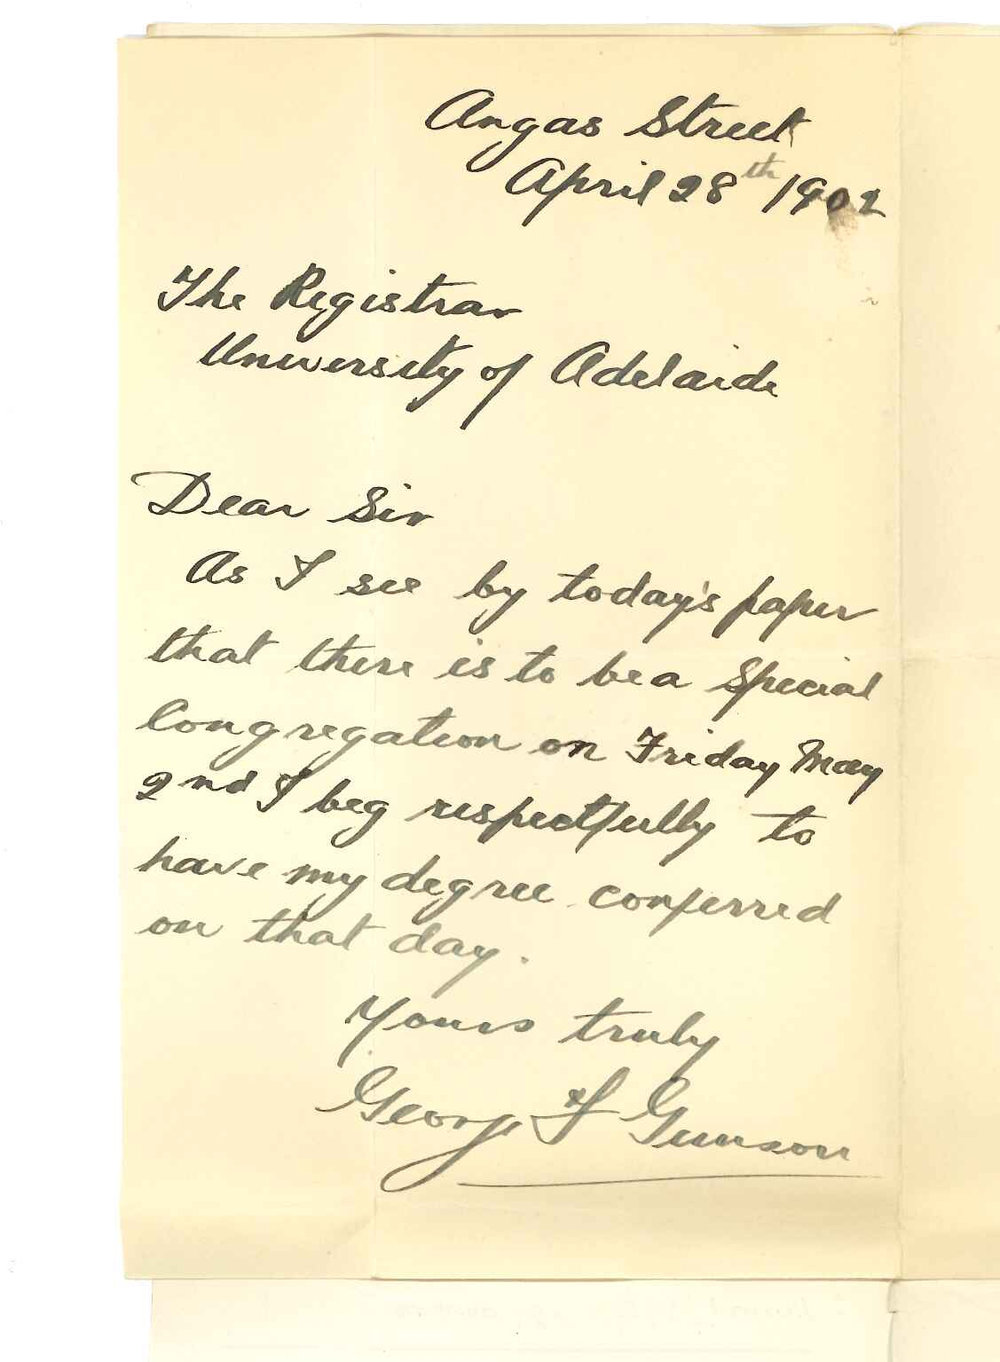 Angas Street
April 28th 1902
The Registrar
University of Adelaide
Dear Sir
As I see by today's paper
that there is to be a Special
Congregation on Friday May
2nd I beg respectfully to
have my degree conferred
on that day.
Yours truly
George F Gunson